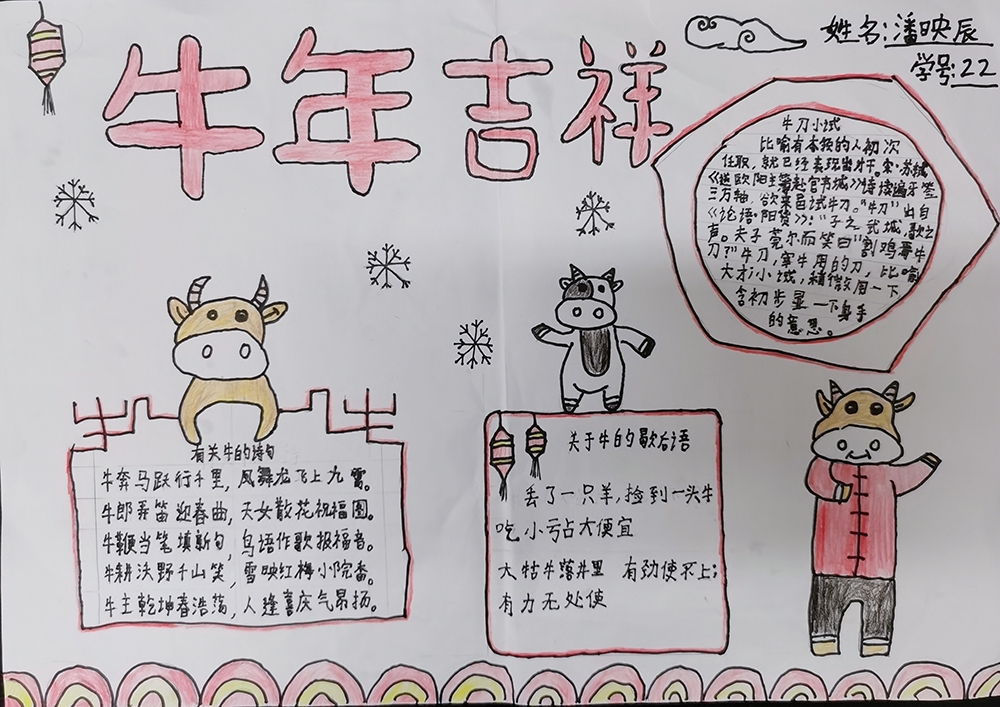 牛年吉祥
姓名:潘映辰
学号:22
牛刀小试
比喻有本领的人初次
任职,就已经表现出才干。宋·苏轼
《送欧阳主簿赴官韦城》诗:读遍牙签
三万轴,欲来小邑试牛刀。"牛刀"出自
《论语·阳货》:"子之武城,歌之
声。夫子莞尔而笑曰"割鸡焉牛
刀?"牛刀,宰牛用的刀,比喻
大才小试,稍微用一下
含初步显一下身手
的意思。
有关牛的诗句
牛奔马跃行千里,凤舞龙飞上九霄。
牛郎弄笛迎春曲,天女散花祝福图。
牛鞭当笔填新句,鸟语作歌报福音。
牛耕沃野千山笑,雪映红梅小院香。
牛主乾坤春浩荡,人逢喜庆气昂扬。
关于牛的歇后语
丢了一只羊,捡到一头牛
吃小亏占大便宜
大牯牛落井里 有劲使不上;
有力无处使